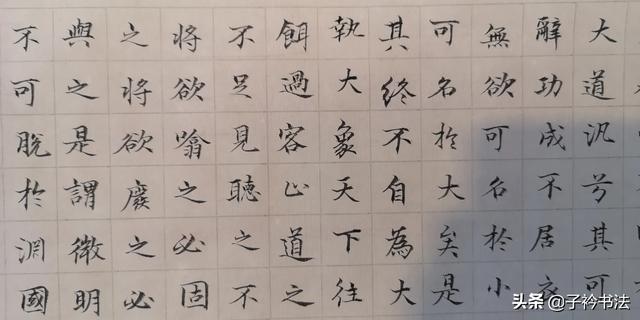 大道汎兮其可
辭功成不居衣
無欲可名於小
可名於大矣是
其終不自為大
執大象天下往
餌過客止道之
不足見聽之不
將欲噏之必固
之將欲廢之必
與之是謂微明
不可脫於淵國
头条 @子衿书法